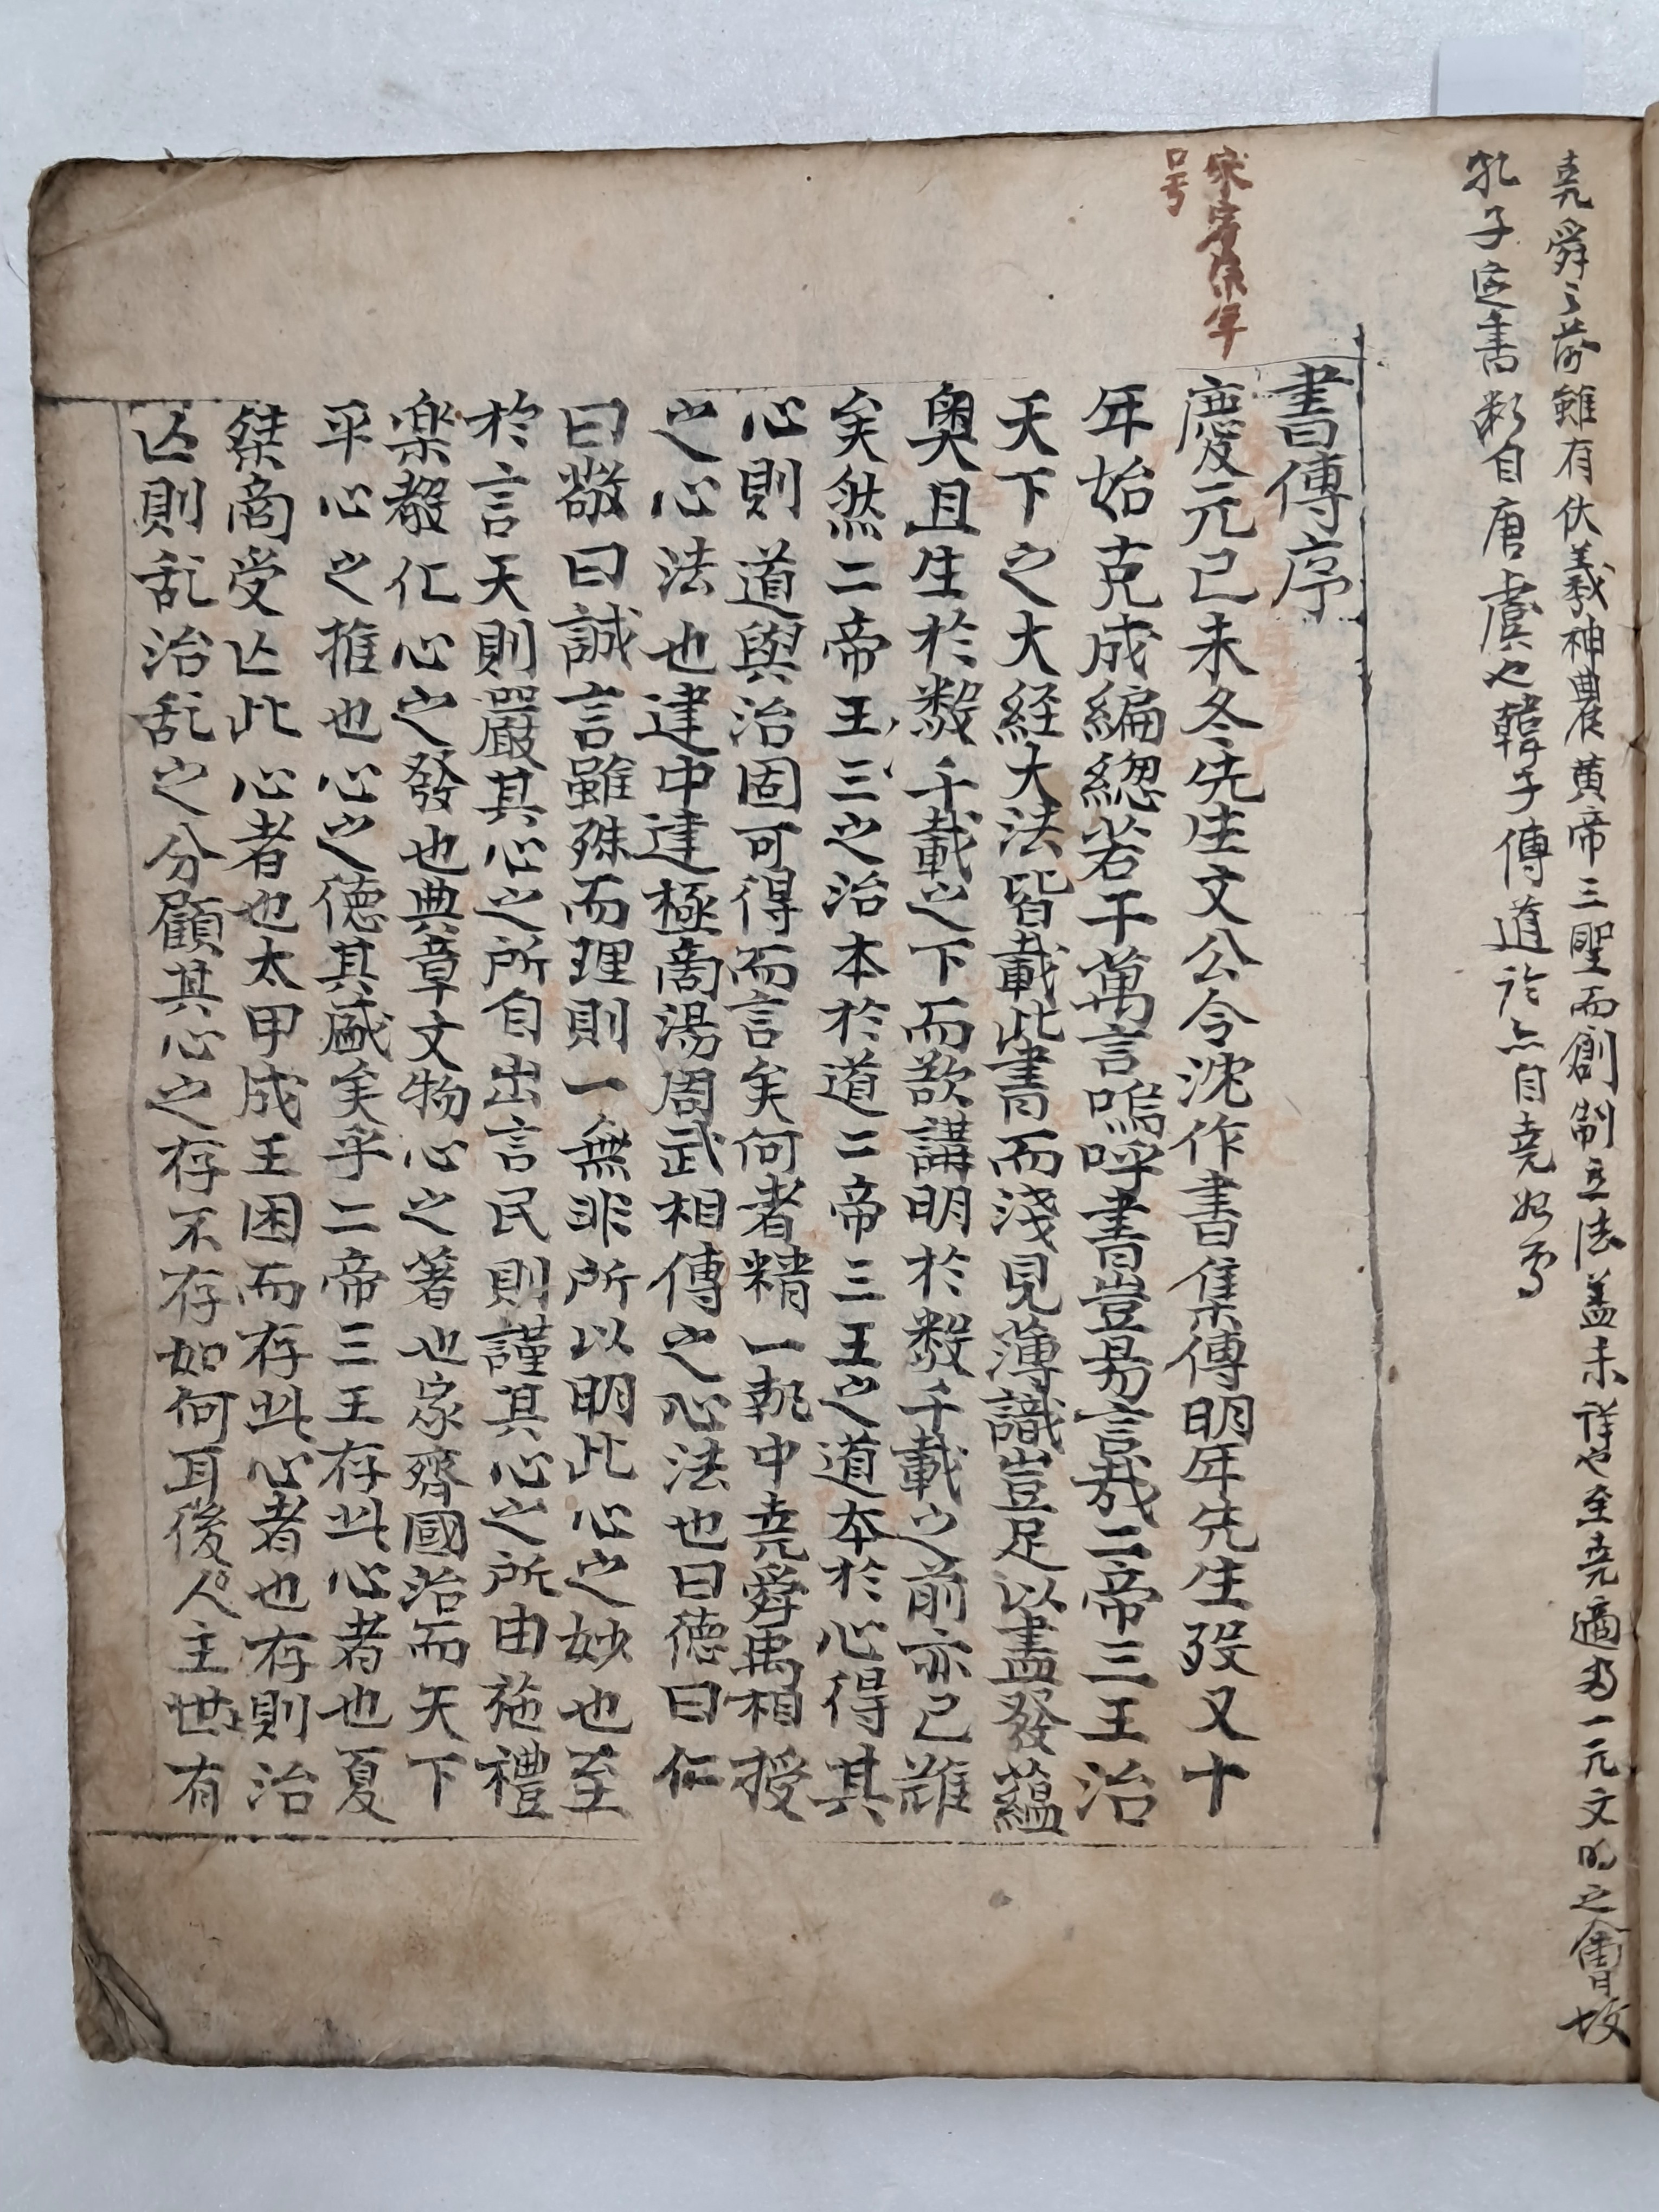 堯舜之前雖有伏羲神農黃帝三聖而創制立法盖未詳也至堯適为一元文明之會故
孔子定書断自唐虞也韓子傳道亦自堯始焉
宋寧宗年
口号
書傳序
慶元己未冬先生文公令沈作書集傳明年先生歿又十
年始克成編緫若干萬言嗚呼書豈易言哉二帝三王治
天下之大経大法皆載此書而淺見薄識豈足以盡發蘊
奥且生於数千載之下而欲講明於数千載之前亦已難
矣然二帝三王之治本於道二帝三王之道本於心得其
心則道與治固可得而言矣何者精一執中堯舜禹相授
之心法也建中建極商湯周武相傳之心法也曰德曰仁
曰敬曰誠言雖殊而理則一無非所以明此心之妙也至
於言天則嚴其心之所自出言民則謹其心之所由施禮
楽教化心之發也典章文物心之著也家齊國治而天下
平心之推也心之德其盛矣乎二帝三王存此心者也夏
桀商受亾此心者也太甲成王困而存此心者也存則治
亾則乱治乱之分顧其心之存不存如何耳後人主世有